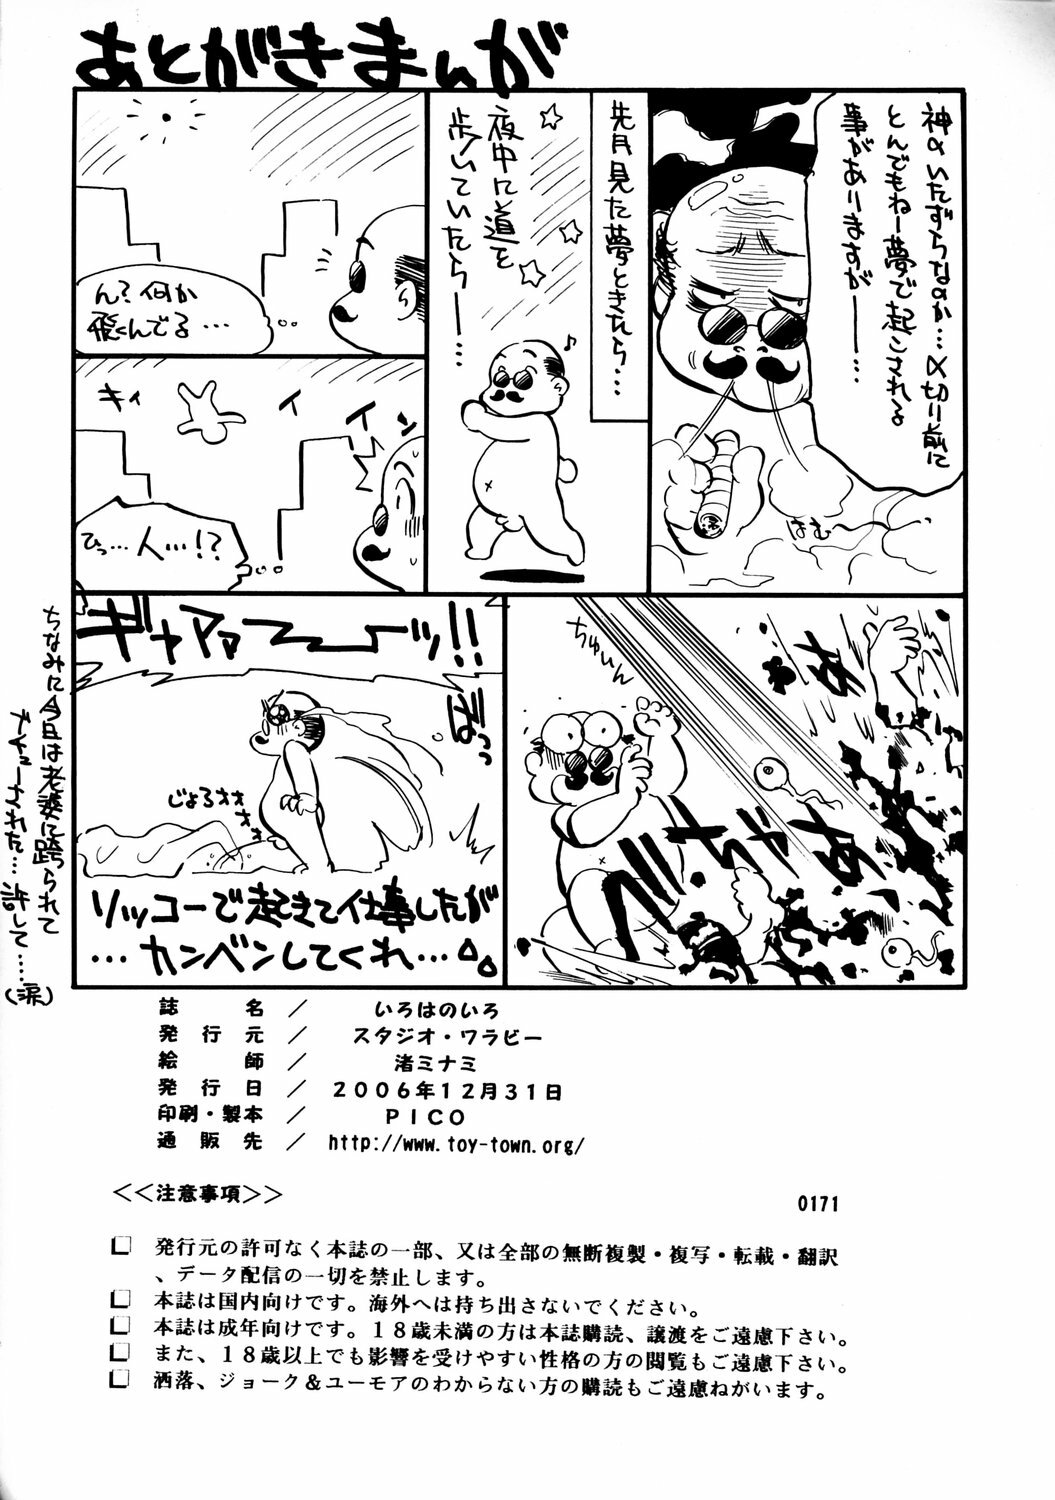 あとがきまんが
神のいたずらなのか…〆切り前に
とんでもねー夢で起こされる
事がありますがー…
はむ
先月見た夢ときたら…
夜中に道を
歩いていたらー…
♪
ん?何か
飛んでる…
キィ
イ
イ
ン
ひっ…人…!?
ちゅいん
あ
あ
ちゃ
ギャアアァーーーッ!!
がばっっ
じょろオオオオ
ソッコーで起きて仕事したが
…カンベンしてくれ…
ちなみに今日は老婆に跨られて
ブチューされた…許して……
(涙)
誌名/いろはのいろ
発行元/スタジオ・ワラビー
絵師/渚ミナミ
発行日/2006年12月31日
印刷・製本/PICO
通販先/http://www.toy-town.org/
<<注意事項>>
0171
発行元の許可なく本誌の一部、又は全部の無断複製・複写・転載・翻訳
、データ配信の一切を禁止します。
本誌は国内向けです。海外へは持ち出さないでください。
本誌は成年向けです。18歳未満の方は本誌購読、譲渡をご遠慮下さい。
また、18歳以上でも影響を受けやすい性格の方の閲覧もご遠慮下さい。
洒落、ジョーク&ユーモアのわからない方の購読もご遠慮ねがいます。